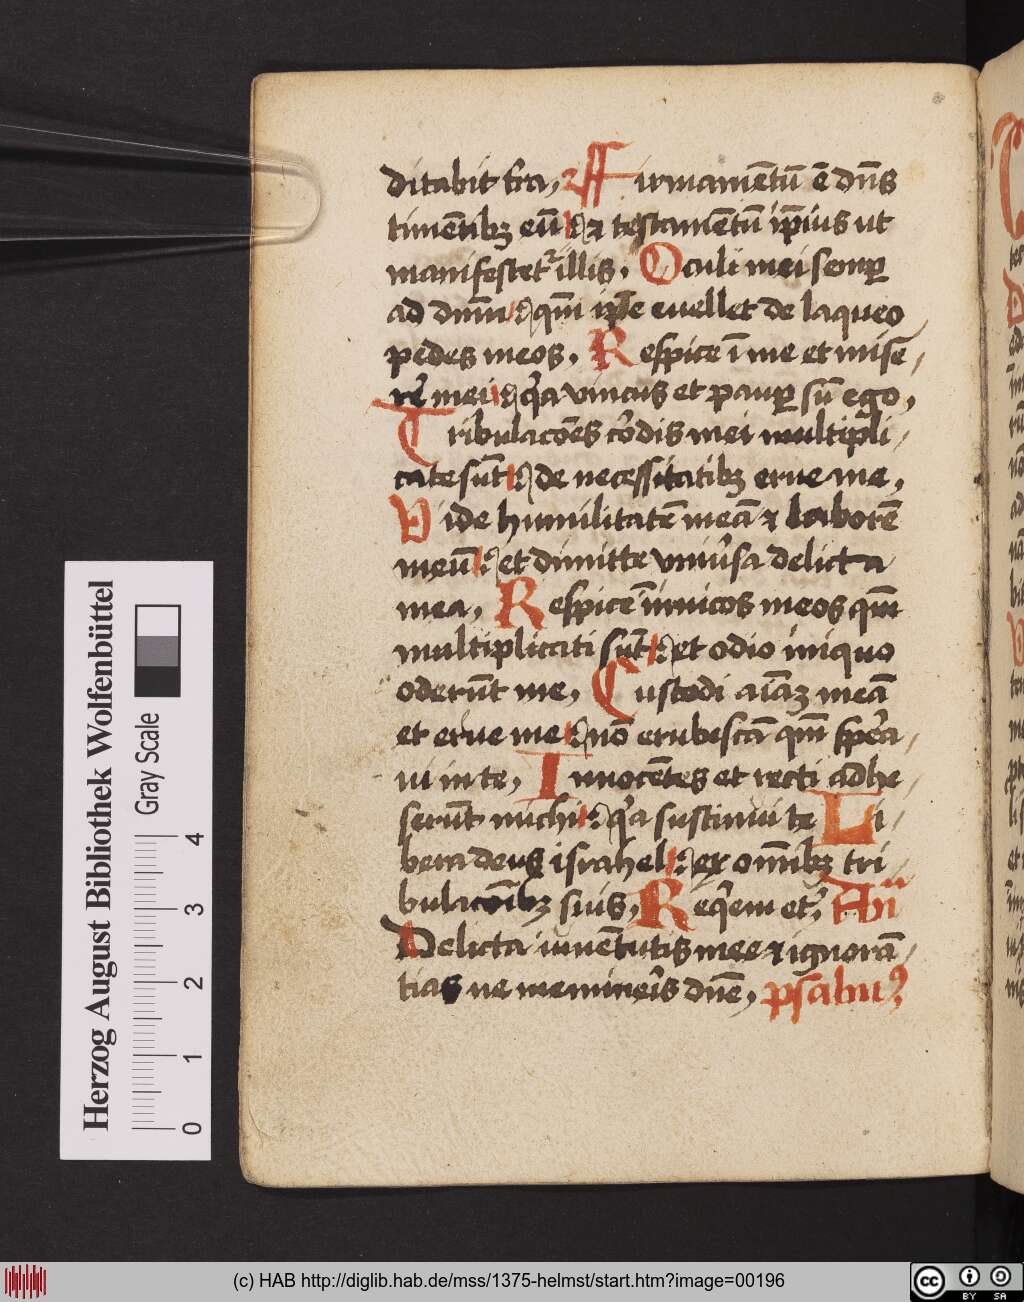 ditabit t̄ra, Firmamētū ē dn̄s
timētibꝫ eū ⁊ testamētū ip̄ius ut
manifestet᷑ illis. Oculi mei semꝑ
ad dnm̄ qm̄ ip̄e euellet de laqueo
pedes meos. Respice ī me et mise
re᷑ mei q̓a vnicus et pauꝑ sū ego,
Tribulacōes cordis mei multipli
cate sūt de necessitatibꝫ erue me,
Vide humilitatē meā ⁊ laborē
meū et dimitte vniu͛sa delicta
mea, Respice inimicos meos qm̄
multiplicati sūt et odio iniquo
oderūt me, Custodi aīaꝫ meā
et erue me nō erubescā qm̄ spera
ui in te, Innocētes et recti adhe
serūt michi q̓a sustinui te Li
bera deus israhel ex om̄ibꝫ tri
bulacōibꝫ suis, Req̓em et᷑, An̄
Delicta iuuētutis mee ⁊ ignorā
tias ne memineris dn̄e, psalmꝰ
Herzog August Bibliothek Wolfenbüttel
Gray Scale
0 1 2 3 4
(c) HAB http://diglib.hab.de/mss/1375-helmst/start.htm?image=00196
cc BY SA